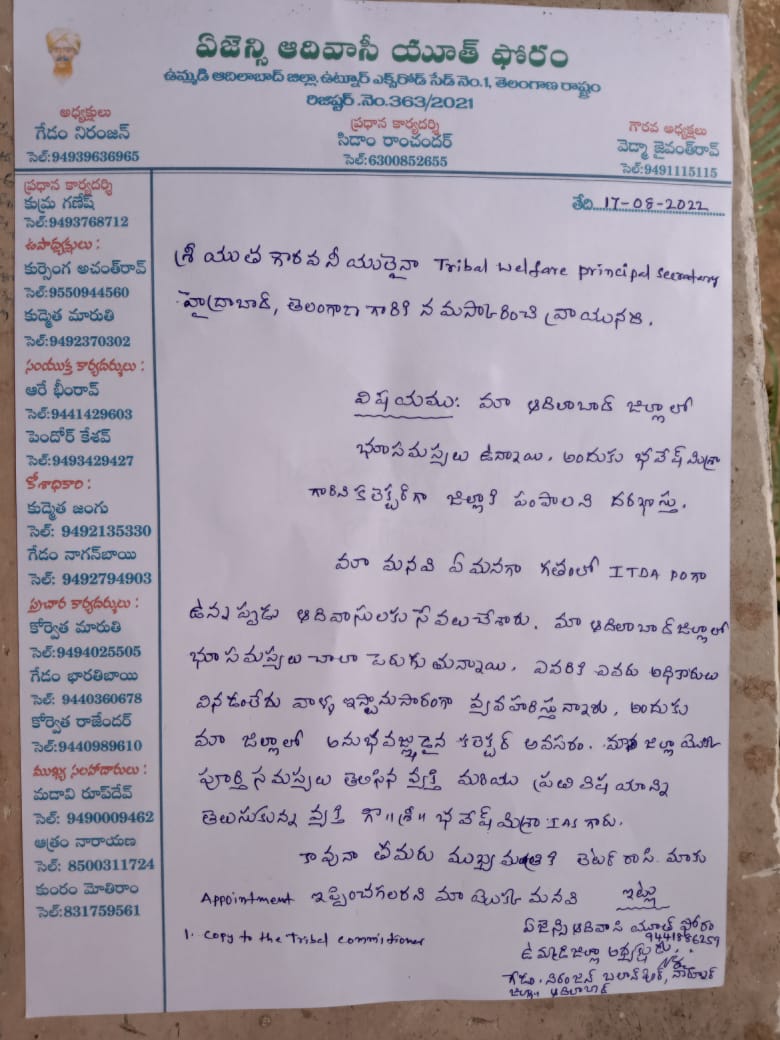 ఏజెన్సి ఆదివాసీ యూత్ ఫోరం
ఉమ్మడి ఆదిలాబాద్ జిల్లా, ఉట్నూర్ ఎక్స్‌రోడ్ సేడ్ నెం.1, తెలంగాణ రాష్ట్రం
రిజిష్టర్ .నెం.363/2021
అధ్యక్షులు
గేడం నిరంజన్
సెల్:94939636965
ప్రధాన కార్యదర్శి
సిడాం రాంచందర్
సెల్:6300852655
గౌరవ అధ్యక్షులు
వెడ్మా జైవంత్‌రావ్
సెల్:9491115115
ప్రధాన కార్యదర్శి
కుమ్ర గణేష్
సెల్:9493768712
ఉపాధ్యక్షులు :
కుర్సెంగ అచంత్‌రావ్
సెల్:9550944560
కుడ్మెత మారుతి
సెల్:9492370302
సంయుక్త కార్యదర్శులు :
ఆరే భీంరావ్
సెల్:9441429603
పెందోర్ కేశవ్
సెల్:9493429427
కోశాధికారి :
కుడ్మెత జంగు
సెల్: 9492135330
గేడం నాగన్‌బాయి
సెల్: 9492794903
ప్రచార కార్యదర్శులు :
కోర్వెత మారుతి
సెల్: 9494025505
గేడం భారతిబాయి
సెల్: 9440360678
కోర్వెత రాజేందర్
సెల్:9440989610
ముఖ్య సలహాదారులు :
మడావి రూప్‌దేవ్
సెల్: 9490009462
ఆత్రం నారాయణ
సెల్: 8500311724
కుంరం మోతిరాం
సెల్:831759561
తేది 17-08-2022
శ్రీ యుత గౌరవనీయులైనా Tribal welfare principal secratary
హైద్రాబాద్, తెలంగాణ గారికి నమస్కరించి వ్రాయునది.
విషయము: మా ఆదిలాబాద్ జిల్లాలో
భూసమస్యలు ఉన్నాయి. అందుకు భవేష్ మిశ్రా
గారిని కలెక్టర్‌గా జిల్లాకి పంపాలని దరఖాస్తు.
మా మనవి ఏమనగా గతంలో ITDA POగా
ఉన్నప్పుడు ఆదివాసులకు సేవలు చేశారు. మా ఆదిలాబాద్ జిల్లాలో
భూసమస్యలు చాలా పెరుగుతున్నాయి. ఎవరికి ఎవరు అధికారులు
వినడంలేదు వాళ్ళ ఇస్టానుసారంగా వ్యవహరిస్తున్నారు, అందుకు
మా జిల్లాలో అనుభవజ్ఞుడైన కలెక్టర్ అవసరం. మా జిల్లా యొక్క
పూర్తి సమస్యలు తెలిసిన వ్యక్తి మరియు ప్రతి విషయాన్ని
తెలుసుకున్న వ్యక్తి గా "శ్రీ" భవేష్ మిశ్రా IAS గారు.
కావునా తమరు ముఖ్యమంత్రికి లెటర్ రాసి మాకు
Appointment ఇప్పించగలరని మా యొక్క మనవి
ఇట్లు
ఏజెన్సి ఆదివాసి యూత్ ఫోరం
9441886259
ఉమ్మడి జిల్లా అధ్యక్షుడు
1. Copy to the Tribal commitioner
గేడం. నిరంజన్
జిల్లా ఆదిలాబాద్